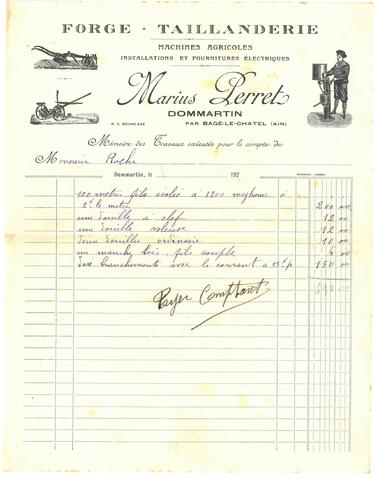 FORGE - TAILLANDERIE
MACHINES AGRICOLES
INSTALLATIONS ET FOURNITURES ÉLECTRIQUES
Marius Perret
DOMMARTIN
R. C. BOURG
PAR BAGÉ-LE-CHATEL (AIN)
Mémoire des Travaux exécutés pour le compte de
Monsieur Roche
Dommartin, le 192
100 metres fils isolés à 1200 meghoms à
2f le metre 200 00
une douille à clef 12 00
une douille voleuse 12 00
deux douilles ordinaire 10 00
un manche bois fils souple 6 00
dix branchements avec le courant à 15f p 150 00
Payer Comptant